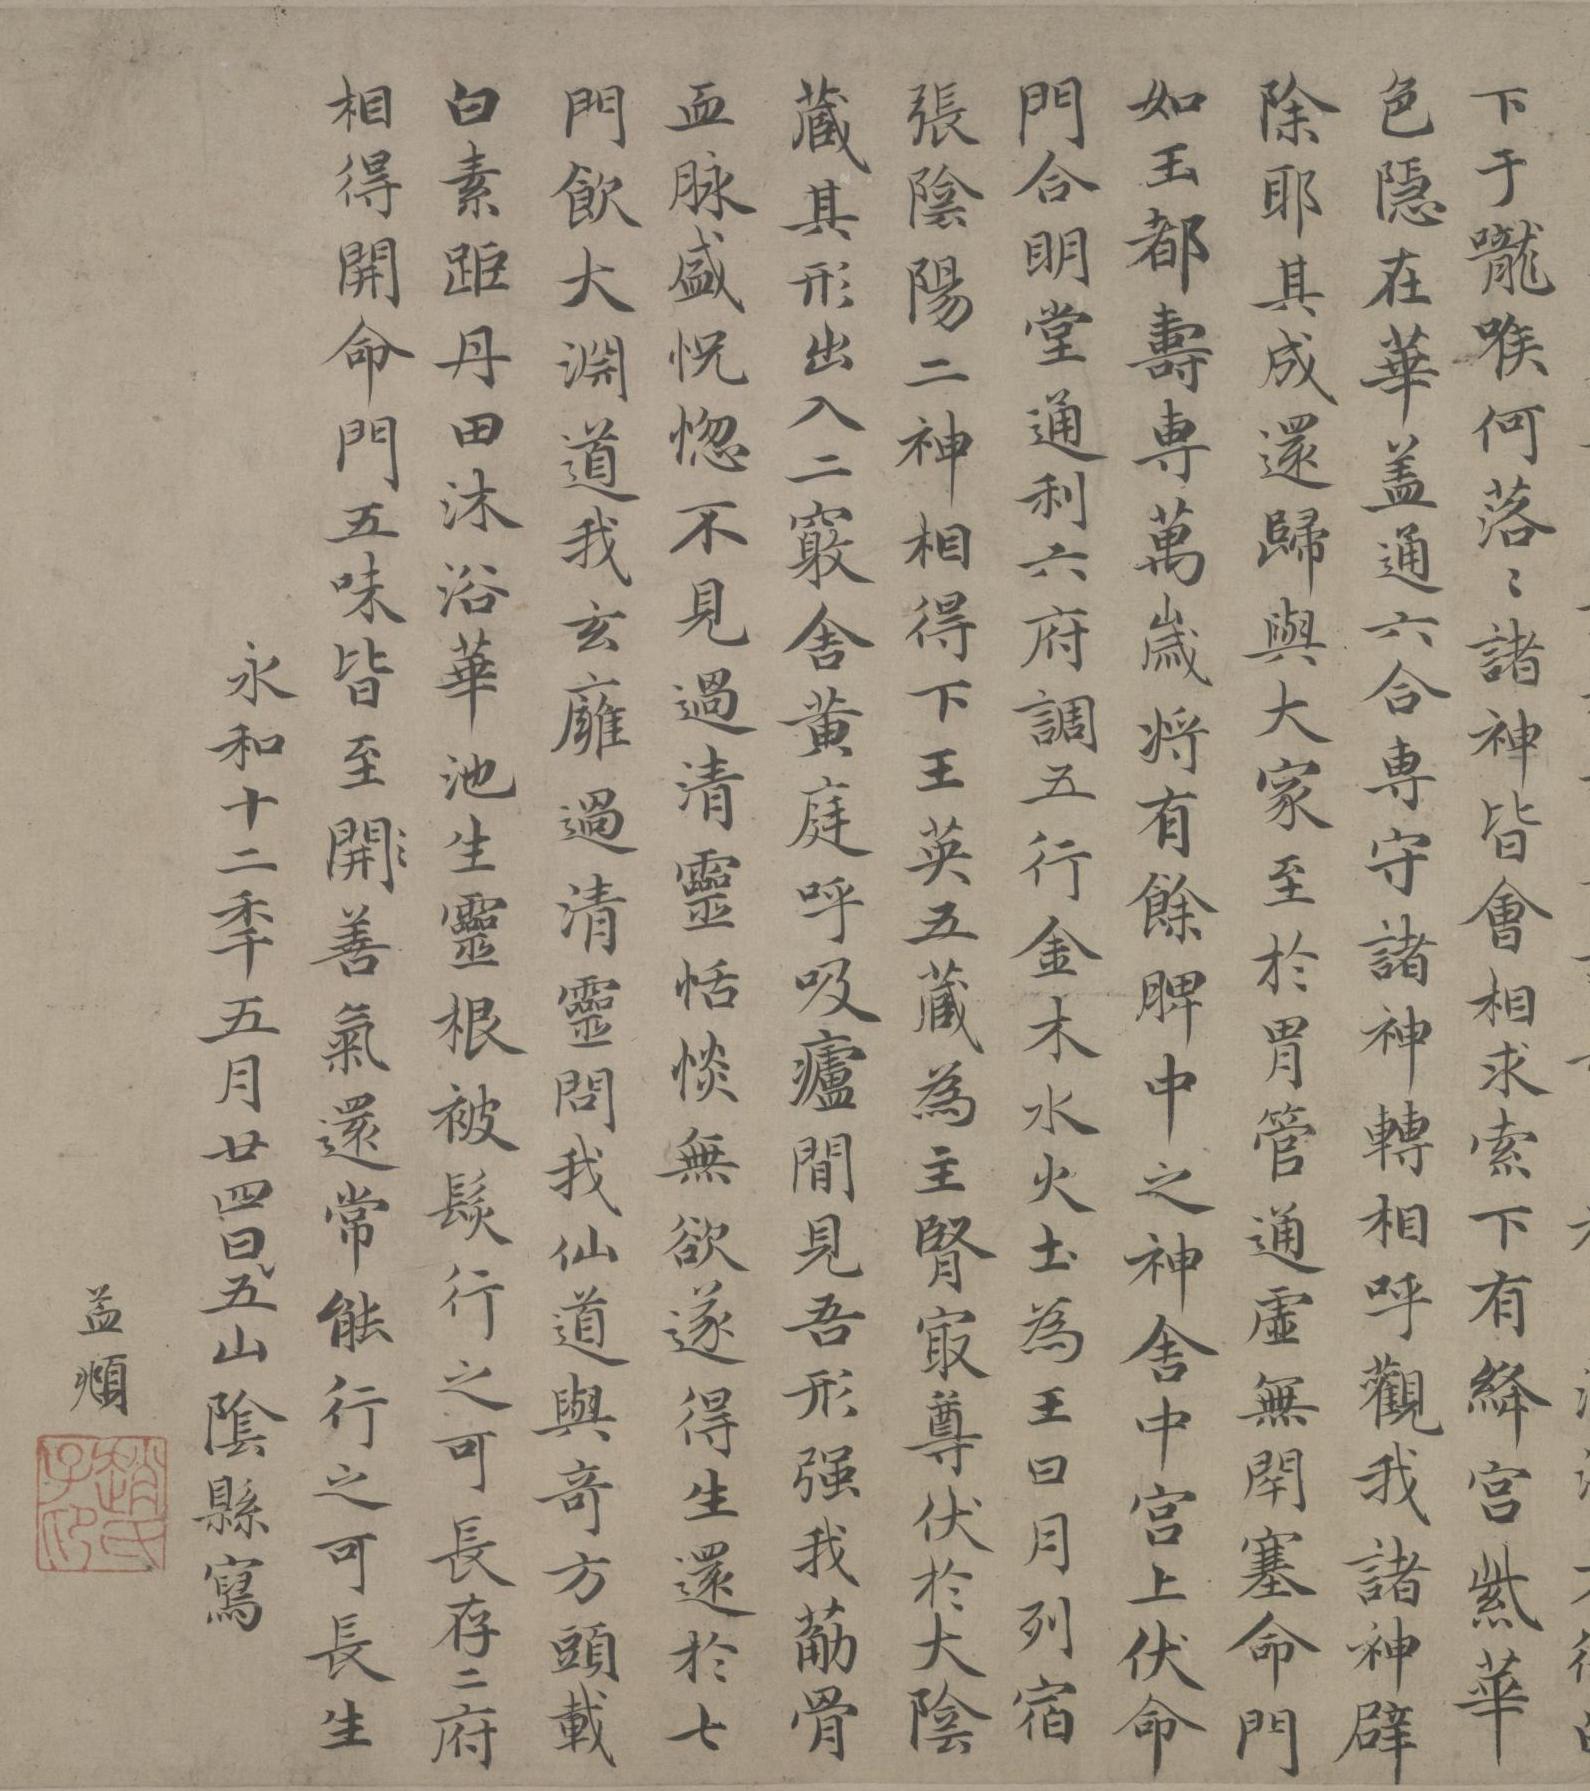 下于嚨喉何落〻諸神皆會相求索下有絳宮紫華
色隱在華盖通六合専守諸神轉相呼觀我諸神辟
除耶其成還歸與大家至於胃管通虛無閇塞命門
如玉都壽専萬歲将有餘脾中之神舍中宮上伏命
門合明堂通利六府調五行金木水火土為王日月列宿
張陰陽二神相得下王英五藏為主腎冣尊伏於大陰
蔵其形出入二竅舍黄庭呼吸廬間見吾形强我筋骨
血脉盛怳惚不見過清靈恬惔無欲遂得生還於七
門飲大淵道我玄廱過清靈問我仙道與奇方頭載
白素距丹田沐浴華池生靈根被髮行之可長存二府
相得開命門五味皆至開善氣還常能行之可長生
永和十二秊五月廿四日五山陰縣寫
孟頫
趙氏子印